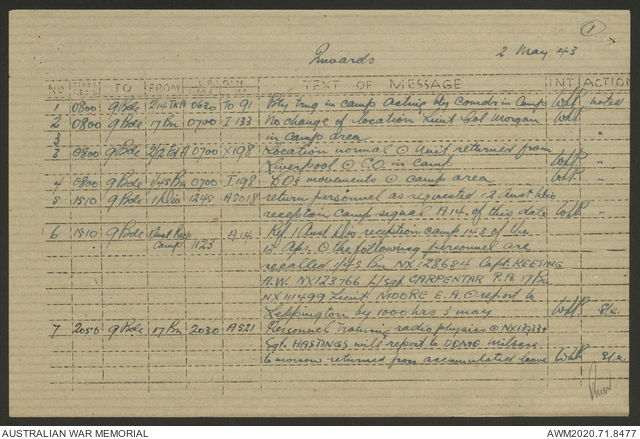 1
Inwards 2 May 43
NO TIME TO FROM ORIGIN TEXT OF MESSAGE INT ACTION
1 0800 9 Bde 2/14 0630 TO 91 Bty trng in camp acting bty comdrs in camp noted
2 0800 9 Bde 17 Bn 0700 I 133 No change of location Lieut Col Morgan "
in camp area
3 0800 9 Bde 0700 X198 Location normal @ Unit returned from
Liverpool @ CO in camp "
4 0800 9 Bde 1/45 Bn 0700 I 198 COs movements @ camp area "
5 1510 9 Bde 1 Div 1245 A5018 return personnel as requested 12 Aust Div
reception camp signal A14 of this date "
6 1510 9 Bde Aust Recp 1123 A14 Ref 1 Aust Div reception camp 1453 of the
camp
13 Ap. @ the following personnel are
recalled 1/45 Bn NX128684 Capt KEESING
A.W. NX123766 L/Sgt CARPENTAR P.A. 17 Bn
NX111499 Lieut MOORE E.A. @ report to
Leppington by 1000 hrs 3 may
7 2050 9 Bde 17 Bn 2030 A521 Personnel Training radio physics @
Sgt. HASTINGS will report to DDME
tomorrow returned from accumulated leave
AUSTRALIAN WAR MEMORIAL AWM2020.71.8477